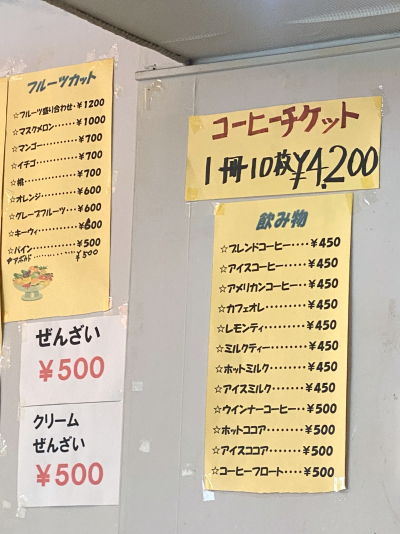 フルーツカット
☆フルーツ盛り合わせ・¥1200
☆マスクメロン・・・・・・¥1000
☆マンゴー・・・・・・・・¥700
☆イチゴ・・・・・・・・・¥700
☆桃・・・・・・・・・・・¥700
☆オレンジ・・・・・・・¥600
☆グレープフルーツ・・・¥600
☆キーウィ・・・・・・・¥600
☆パイン・・・・・・・・¥500
☆アボカド・・・・・・・¥500
ぜんざい
¥500
クリーム
ぜんざい
¥500
コーヒーチケット
1冊10枚¥4,200
飲み物
☆ブレンドコーヒー・・・・¥450
☆アイスコーヒー・・・・・¥450
☆アメリカンコーヒー・・¥450
☆カフェオレ・・・・・・・・¥450
☆レモンティ・・・・・・・・¥450
☆ミルクティー・・・・・・・¥450
☆ホットミルク・・・・・・・¥450
☆アイスミルク・・・・・・・¥450
☆ウインナーコーヒー・・¥500
☆ホットココア・・・・・・・¥500
☆アイスココア・・・・・・・¥500
☆コーヒーフロート・・・・¥500